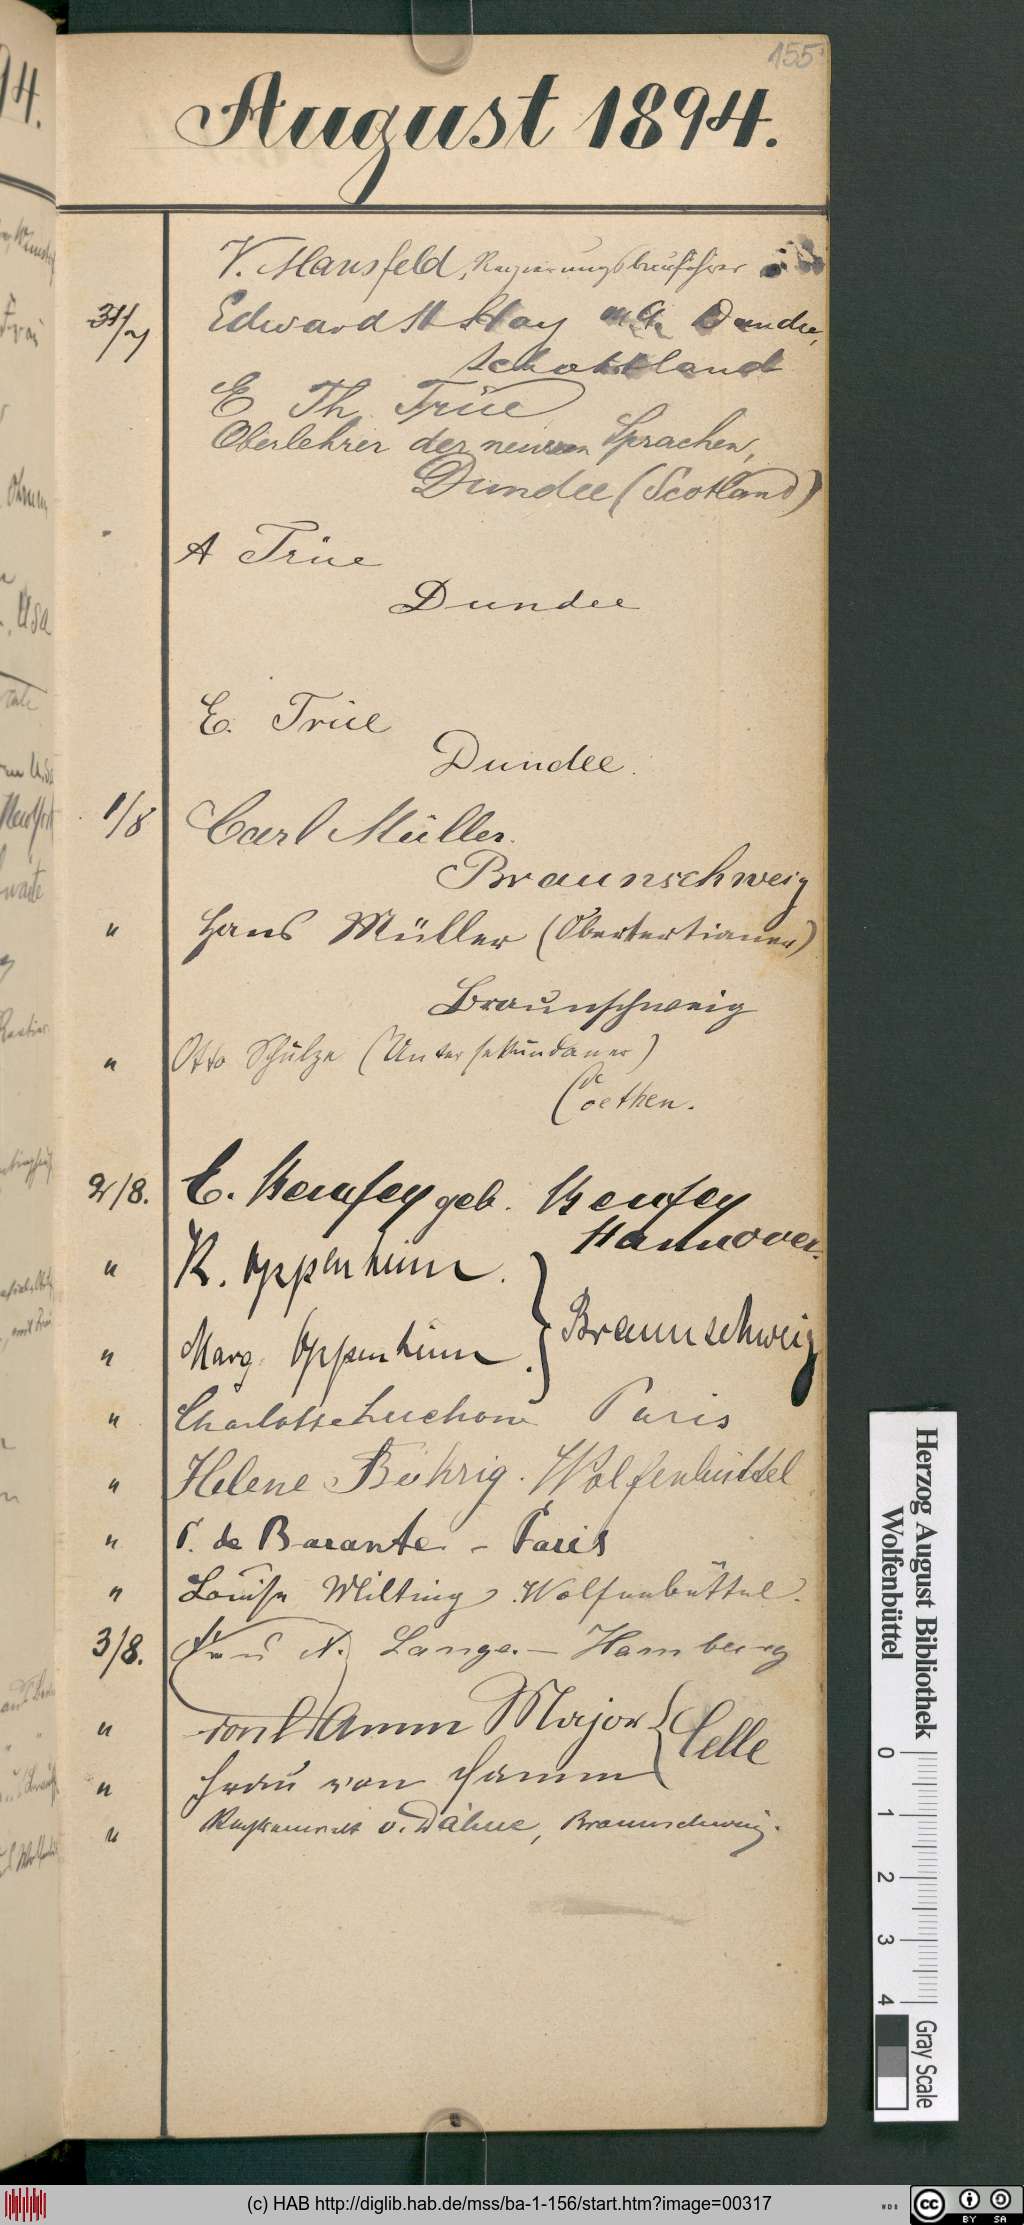 155
August 1894.
V. Mansfeld, Regierungsbauführer
31/7 Edward H Hay M.A. Dundee,
Schottland
E Th. Trüe
Oberlehrer der neueren Sprachen,
Dundee (Scotland)
" A Trüe
Dundee
E. Trüe
Dundee.
1/8 Carl Müller.
Braunschweig
" Hans Müller (Obertertianer)
Braunschweig
" Otto Schulze (Untersekundaner)
Coethen.
2/8. E. geb.
Hannover.
" R. Oppenheim.
" Marg. Oppenheim. } Braunschweig
" Charlotte Luchon Paris
" Helene Bührig. Wolfenbüttel
" P. de Barante - Paris
" Louise Wilting Wolfenbüttel.
3/8. Frau N. Lange. — Hamburg
" von Hamm Major { Celle
" Frau von Hamm
" v. Dähne, Braunschweig.
Herzog August Bibliothek
Wolfenbüttel
0 1 2 3 4
Gray Scale
(c) HAB http://diglib.hab.de/mss/ba-1-156/start.htm?image=00317
WDB
cc BY SA